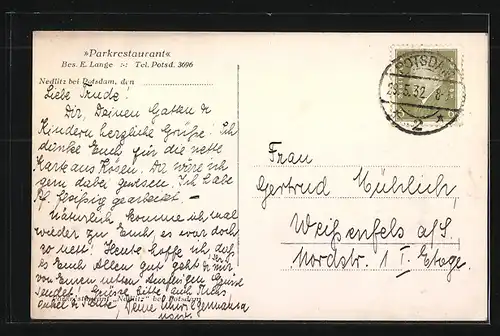 »Parkrestaurant«
Bes. E. Lange :-: Tel. Potsd. 3696
Nedlitz bei Potsdam, den
Liebe Trude!
Dir, Deinen Gatten &
Kindern herzliche Grüße! Ich
danke Euch für die nette
Karte aus Kösen. Da wäre ich
gern dabei gewesen. Ich habe
Pf. fleißig gearbeitet –
Natürlich komme ich mal
wieder zu Euch, es war doch
so nett! Heute hoffe ich daß
es Euch Allen gut geht &
von Euren netten Ausflügen Grüße
sendet! Grüße bitte auch
Onkel & Tante, Deine
Parkrestaurant "Nedlitz" bei Potsdam
POTSDAM
23.5.32
2
Frau
Gertrud Mühlich,
Weißenfels a/S.
Nordstr. 1 I. Etage.